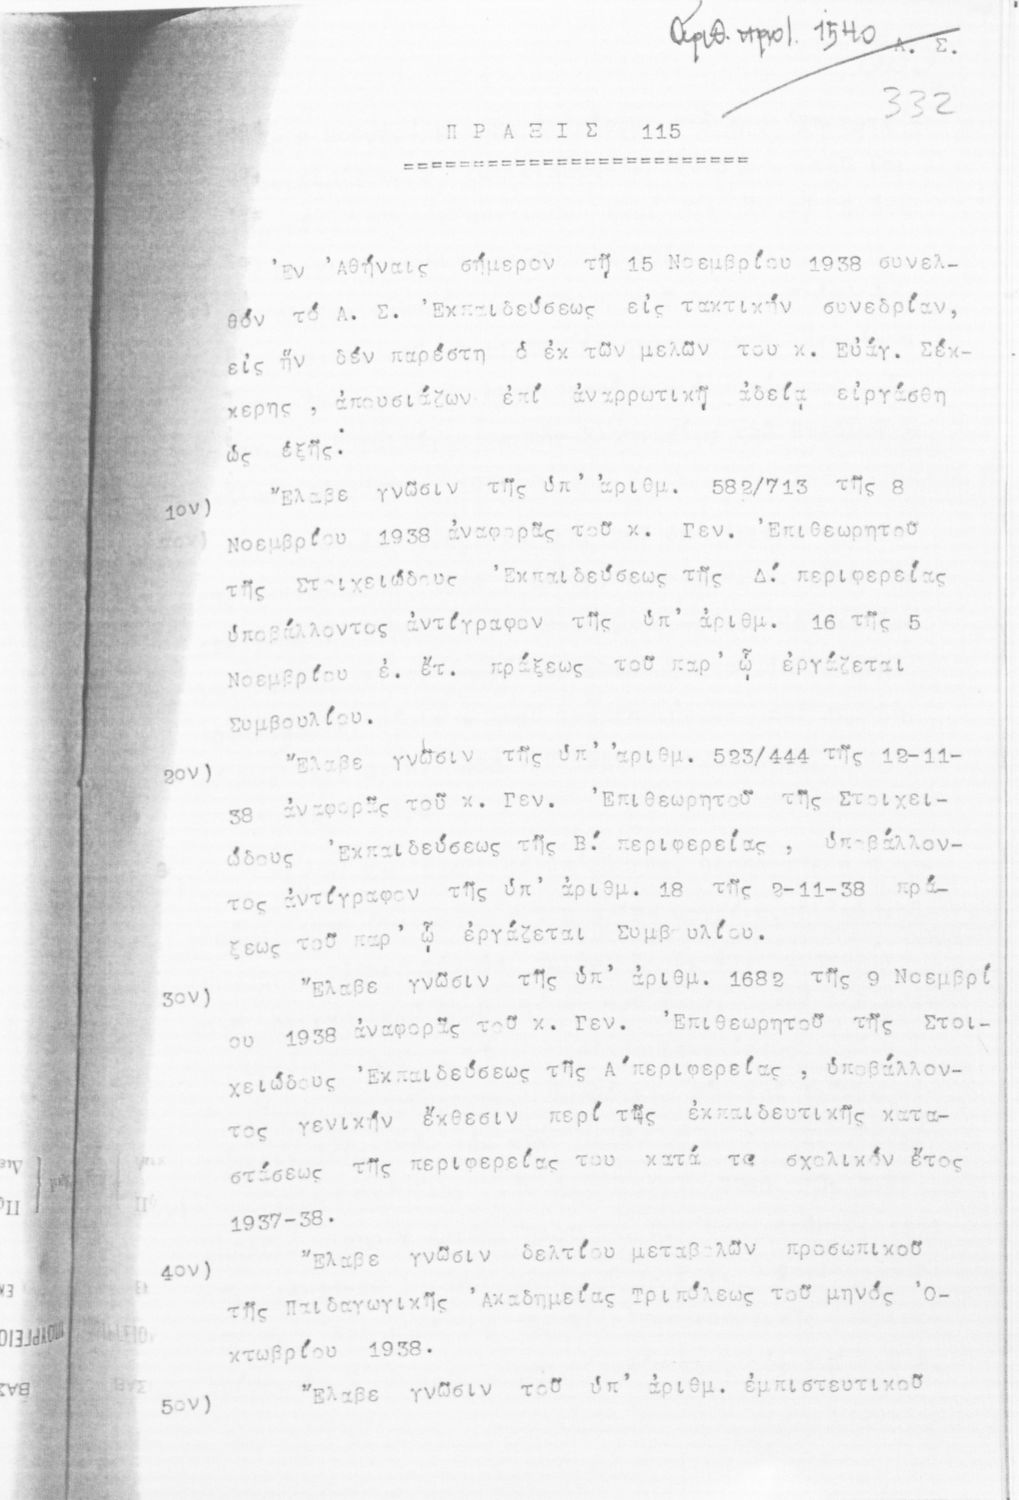 Αριθ. πρωτ. 1540
Α. Σ.
332
Π Ρ Α Ξ Ι Σ 115
==========================
Ἐν Ἀθήναις σήμερον τῇ 15 Νοεμβρίου 1938 συνελ-
θόν τό Α. Σ. Ἐκπαιδεύσεως εἰς τακτικήν συνεδρίαν,
εἰς ἥν δέν παρέστη ὁ ἐκ τῶν μελῶν του κ. Εὐάγ. Σέκ-
κερης , ἀπουσιάζων ἐπί ἀναρρωτικῇ ἀδείᾳ εἰργάσθη
ὡς ἑξῆς:
1ον) Ἔλαβε γνῶσιν τῆς ὑπ' ἀριθμ. 582/713 τῆς 8
Νοεμβρίου 1938 ἀναφορᾶς τοῦ κ. Γεν. Ἐπιθεωρητοῦ
τῆς Στοιχειώδους Ἐκπαιδεύσεως τῆς Δ! περιφερείας
ὑποβάλλοντος ἀντίγραφον τῆς ὑπ' ἀριθμ. 16 τῆς 5
Νοεμβρίου ἐ. ἔτ. πράξεως τοῦ παρ' ᾧ ἐργάζεται
Συμβουλίου.
2ον) Ἔλαβε γνῶσιν τῆς ὑπ' ἀριθμ. 523/444 τῆς 12-11-
38 ἀναφορᾶς τοῦ κ. Γεν. Ἐπιθεωρητοῦ τῆς Στοιχει-
ώδους Ἐκπαιδεύσεως τῆς Β! περιφερείας , ὑποβάλλον-
τος ἀντίγραφον τῆς ὑπ' ἀριθμ. 18 τῆς 2-11-38 πρά-
ξεως τοῦ παρ' ᾧ ἐργάζεται Συμβουλίου.
3ον) Ἔλαβε γνῶσιν τῆς ὑπ' ἀριθμ. 1682 τῆς 9 Νοεμβρί
ου 1938 ἀναφορᾶς τοῦ κ. Γεν. Ἐπιθεωρητοῦ τῆς Στοι-
χειώδους Ἐκπαιδεύσεως τῆς Α' περιφερείας , ὑποβάλλον-
τος γενικήν ἔκθεσιν περί τῆς ἐκπαιδευτικῆς κατα-
στάσεως τῆς περιφερείας του κατά το σχολικόν ἔτος
1937-38.
4ον) Ἔλαβε γνῶσιν δελτίου μεταβολῶν προσωπικοῦ
τῆς Παιδαγωγικῆς Ἀκαδημείας Τριπόλεως τοῦ μηνός Ὀ-
κτωβρίου 1938.
5ον) Ἔλαβε γνῶσιν τοῦ ὑπ' ἀριθμ. ἐμπιστευτικοῦ